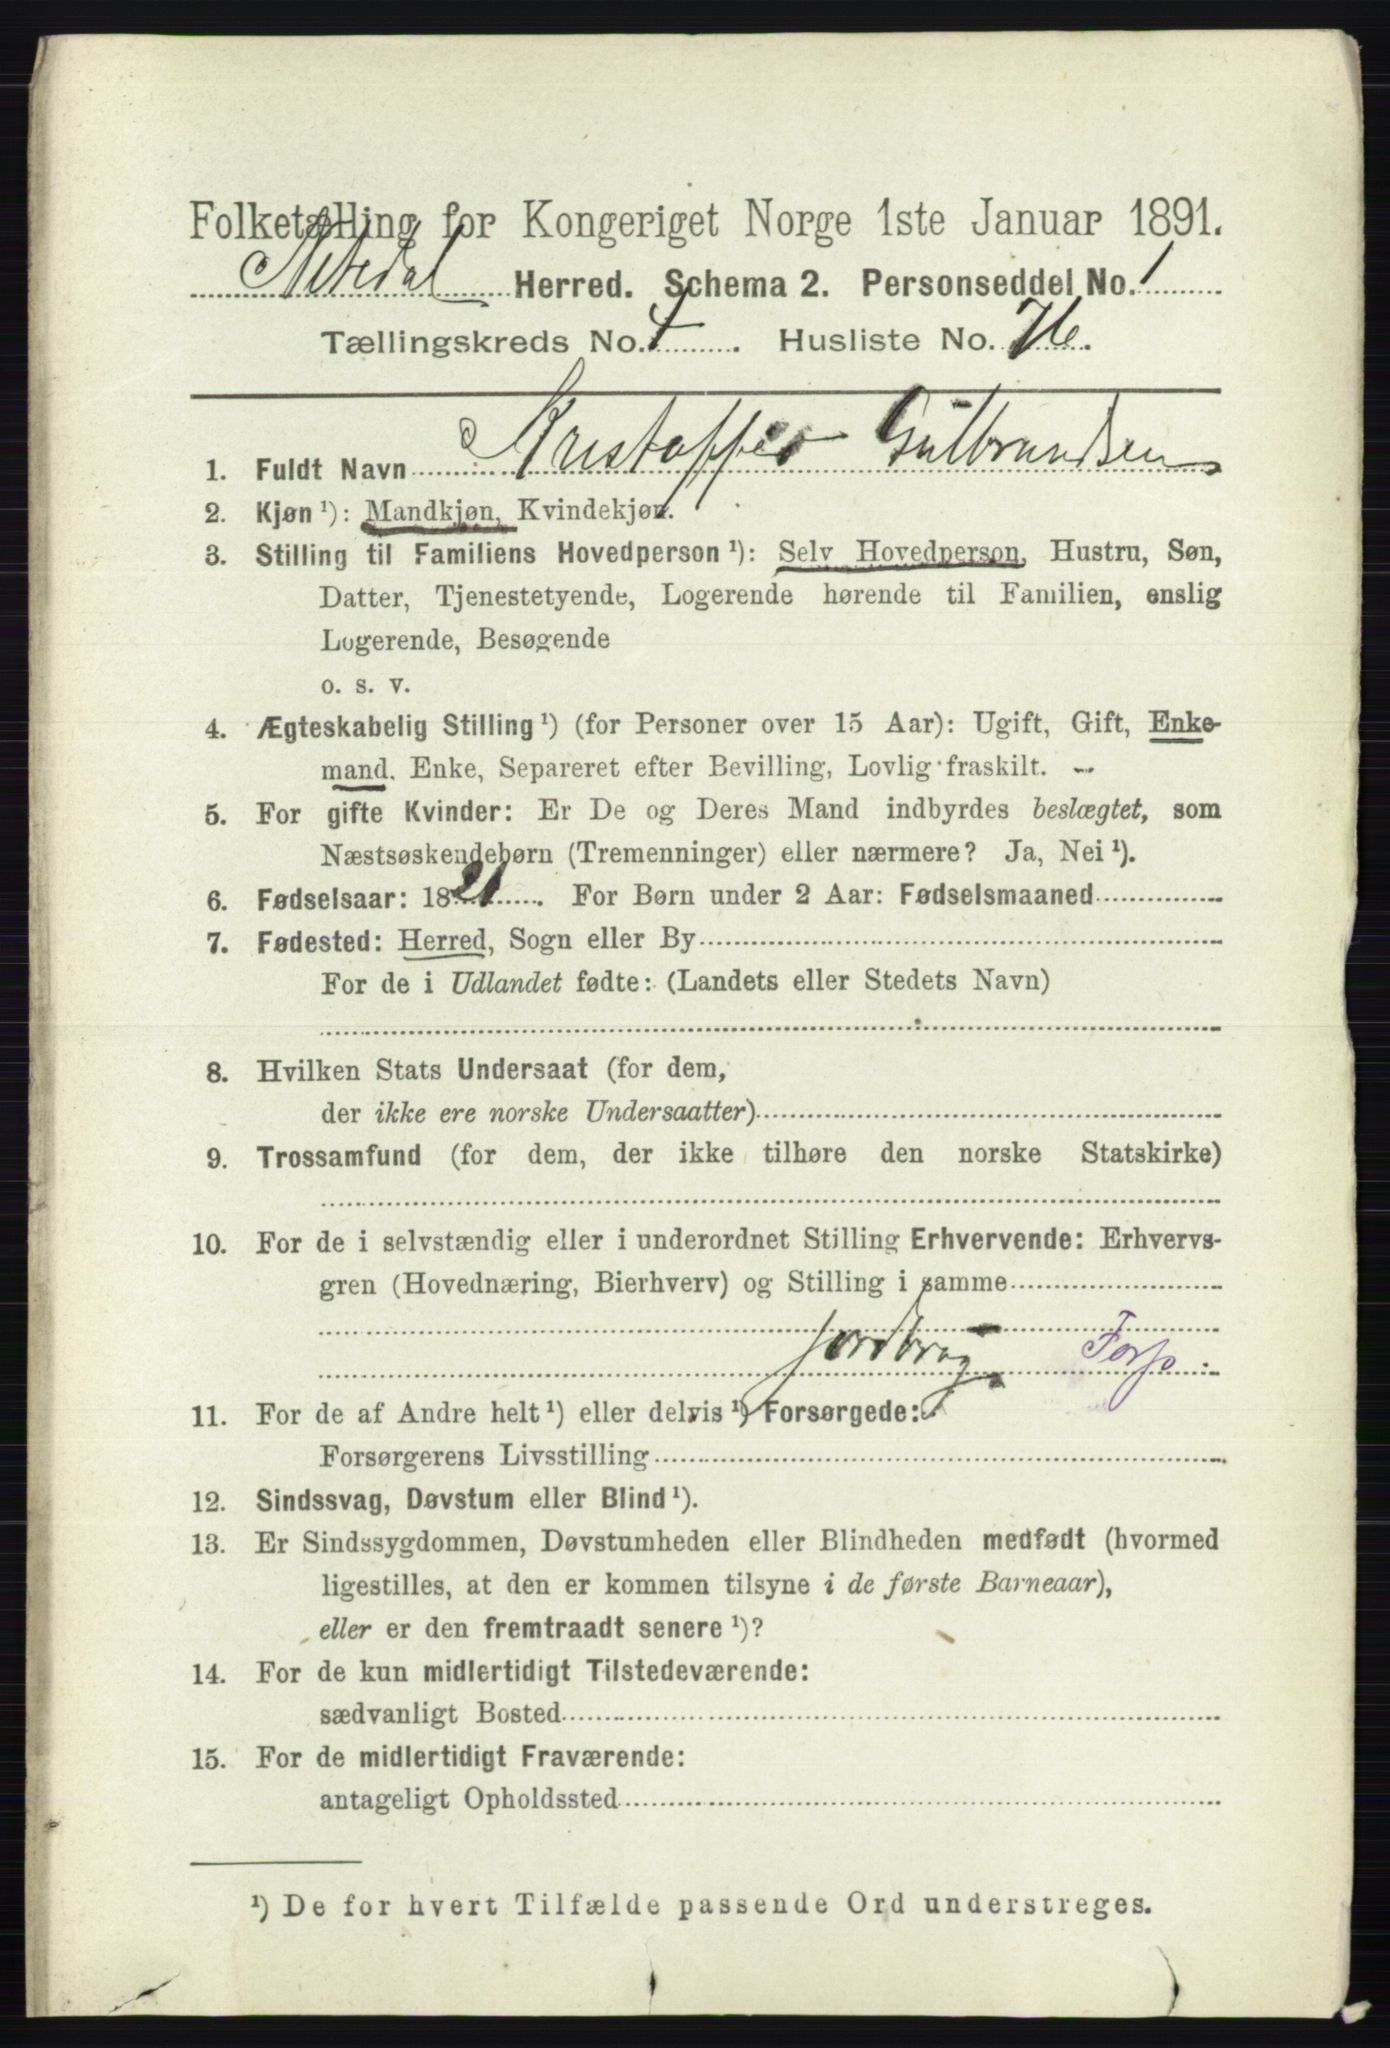 Folketælling for Kongeriget Norge 1ste Januar 1891.
Nitedal Herred. Schema 2. Personseddel No. 1
Tællingskreds No. 4. Husliste No. 76.
1. Fuldt Navn Kristoffer Gulbrandsen
2. Kjøn ¹): Mandkjøn, Kvindekjøn.
3. Stilling til Familiens Hovedperson ¹): Selv Hovedperson, Hustru, Søn,
Datter, Tjenestetyende, Logerende hørende til Familien, enslig
Logerende, Besøgende
o. s. v.
4. Ægteskabelig Stilling ¹) (for Personer over 15 Aar): Ugift, Gift, Enke-
mand, Enke, Separeret efter Bevilling, Lovlig fraskilt.
5. For gifte Kvinder: Er De og Deres Mand indbyrdes beslægtet, som
Næstsøskendebørn (Tremenninger) eller nærmere? Ja, Nei ¹).
6. Fødselsaar: 1821. For Børn under 2 Aar: Fødselsmaaned
7. Fødested: Herred, Sogn eller By
For de i Udlandet fødte: (Landets eller Stedets Navn)
8. Hvilken Stats Undersaat (for dem,
der ikke ere norske Undersaatter)
9. Trossamfund (for dem, der ikke tilhøre den norske Statskirke)
10. For de i selvstændig eller i underordnet Stilling Erhvervende: Erhvervs-
gren (Hovednæring, Bierhverv) og Stilling i samme
Jordbrug
11. For de af Andre helt ¹) eller delvis ¹) Forsørgede:
Forsørgerens Livsstilling
12. Sindssvag, Døvstum eller Blind ¹).
13. Er Sindssygdommen, Døvstumheden eller Blindheden medfødt (hvormed
ligestilles, at den er kommen tilsyne i de første Barneaar),
eller er den fremtraadt senere ¹)?
14. For de kun midlertidigt Tilstedeværende:
sædvanligt Bosted
15. For de midlertidigt Fraværende:
antageligt Opholdssted
¹) De for hvert Tilfælde passende Ord understreges.